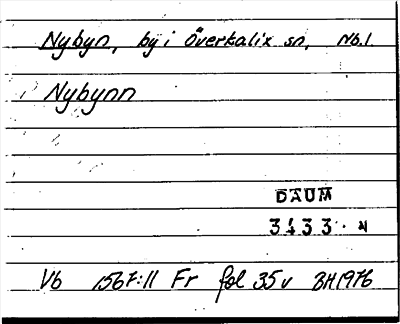 Nybyn, by i Överkalix sn, Nb.l.
Nybynn
DAUM
3433 · N
Vb 1567:11 Fr fol 35 v BH1976